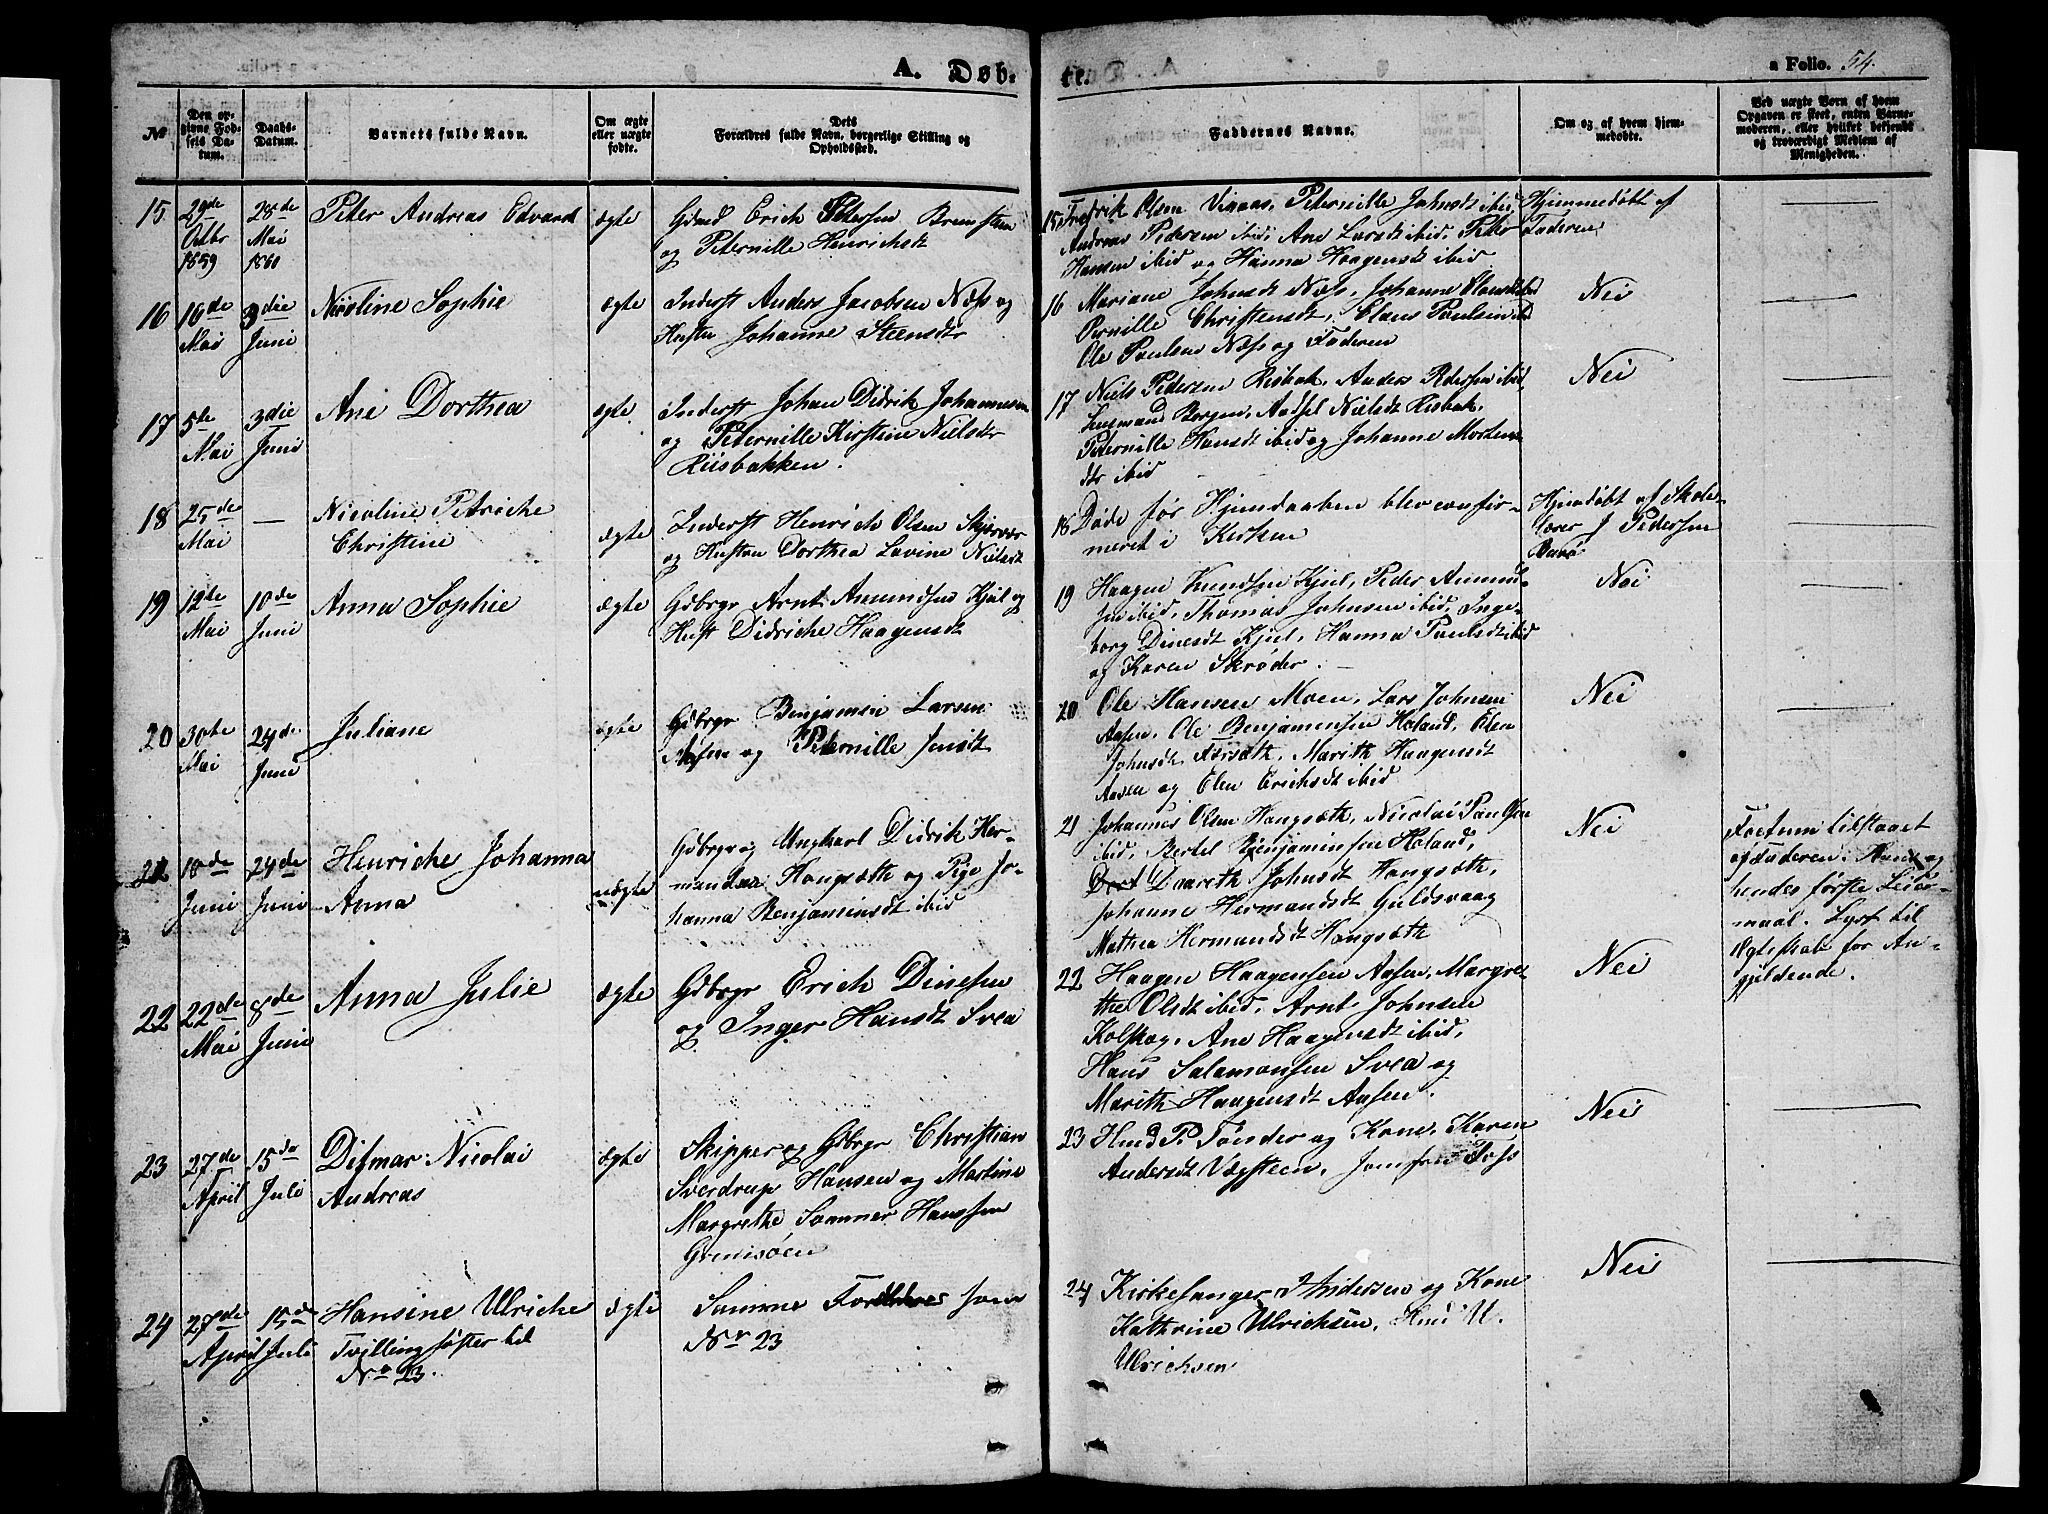 A. Døb-
te.
a Folio. 54.
№
Den opgivne Fødsels Datum.
Daabs-Datum.
Barnets fulde Navn.
Om ægte eller uægte fødte.
Dets Forældres fulde Navn, borgerlige Stilling og Opholdssted.
Faddernes Navne.
Om og af hvem hjemmedøbte.
Ved uægte Børn af hvem Opgaven er skeet, enten Barnemoderen, eller hvilket bekjendt og troværdigt Medlem af Menigheden.
15 29de Octbr 1859
28de Mai 1860
Peter Andreas Edvard
ægte
Gdmd Erich Petersen Bremsteen
og Peternille Henrichsdt
15 Fredrik Olsen Vinaas, Peternille Johnsdt ibid,
Andreas Pedersen ibid, Ane Larsdt ibid, Peter
Hansen ibid og Hanna Haagensdt ibid
Hjemmedøbt af
Faderen
16 16de Mai
3die Juni
Nicoline Sophie
ægte
Inderst Anders Jacobsen Næss og
Hustru Johanne Steensdtr
16 Mariane Johnsdt Næss, Johanne Olausdt ibid
Pernille Christensdt, Claus Paulsen ibid
Ole Paulsen Næss og Faderen
Nei
17 5te Mai
3die Juni
Ane Dorthea
ægte
Inderst Johan Didrik Johannesen
og Peternille Kirstine Nielsdtr
Riisbakken.
17 Niels Pedersen Risbak, Anders Pedersen ibid,
Lensmand Borgen, Aadsel Nielsdt Risbak,
Peternille Hansdt ibid og Johanne Mortens
dtr ibid
Nei
18 25de Mai
—
Nicoline Petriche
Christine
ægte
Inderst Henrich Olsen Skjervær
og Hustru Dorthea Lavine Nielsdt
18 Døde før Hjemdaaben blev confir-
meret i Kirken
Hjemdøbt af Skole-
lærer J Pedersen
19 12de Mai
10de Juni
Anna Sophie
ægte
Gdbrgr Arnt Amundsen Kjul og
Hust Didriche Haagensdt
19 Haagen Knudsen Kjul, Peder Amund-
sen ibid, Thomas Johnsen ibid, Inge-
borg Dinesdt Kjul, Hanna Paulsdt ibid
og Karen Skrøder. —
Nei
20 30te Mai
24de Juni
Juliane
ægte
Gdbrgr Benjamin Larsen
Aasen og Peternille Jensdt
20 Ole Hansen Moen, Lars Johnsen
Aasen, Ole Benjaminsen Høland, Elen
Johnsdt, Marith Haagensdt
Aasen og Elen Erichsdt ibid
Nei
21 18de Juni
24de Juni
Henriche Johanna
Anna
uægte
Gdbrgr og Ungkarl Didrik Her-
mandsen Hongsæth og Pige Jo-
hanna Benjaminsdt ibid
21 Johannes Olsen Hongsæth, Nicolai Paulsen
ibid, Bertel Benjaminsen Høland,
Dort Daareth Johnsdt Hongsæth,
Johanne Hermandsdt Guldsvaag
Mathea Hermandsdt Hongsæth
Nei
Foetum tilstaaet
af Faderen. Hans og
hendes første Leier-
maal. Lyst til
Ægteskab for An-
gjeldende.
22 22de Mai
8de Juni
Anna Julie
ægte
Gdbrgr Erich Dinesen
og Inger Hansdt Svea
22 Haagen Haagensen Aasen, Margre-
the Olsdt ibid, Arnt Johnsen
Kolskog, Ane Haagensdt ibid,
Hans Salamonsen Svea og
Marith Haagensdt Aasen.
Nei
23 27de April
15de Juli
Ditmar Nicolai
Andreas
ægte
Skipper og Gdbrgr Christian
Sverdrup Hansen og Martine
Margrethe Sommer Hanssen
23 Hmd P. Tønder og Kone Karen
Andersdt Vegsteen, Jomfru Foss
Nei
24 27de April
15de Juli
Hansine Ulriche
Tvillingsøster til
No 23.
ægte
Samme Forældre som
Nr 23
24 Kirkesanger Andersen og Kone
Kathrine Ulrichsen, Hmd U.
Ulrichsen
Nei